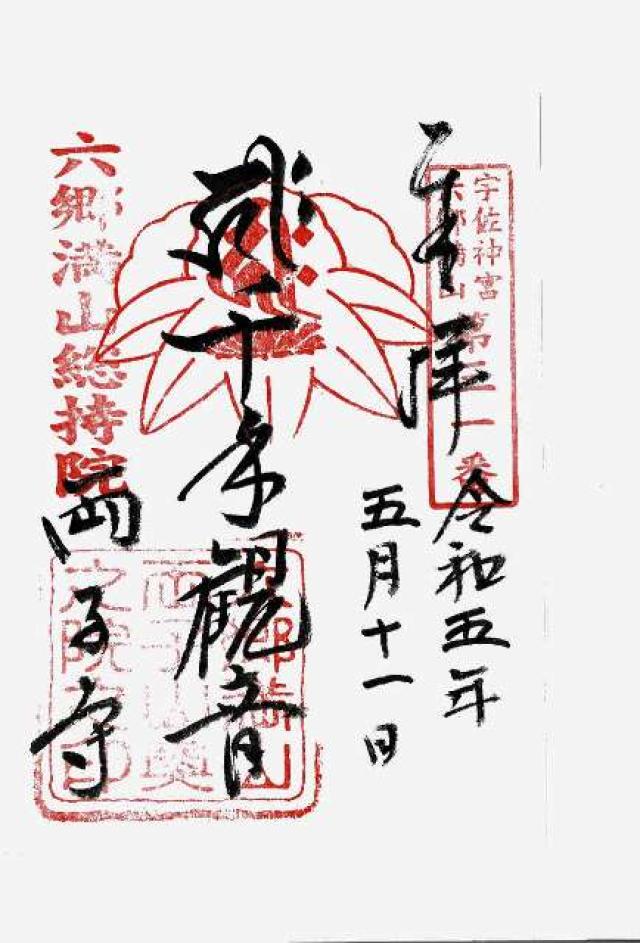 奉拝
宇佐神宮
六郷満山
令和五年
五月十一日
千手観音
六郷満山総持院
両子寺
六郷満山
両子山奥
之院之印